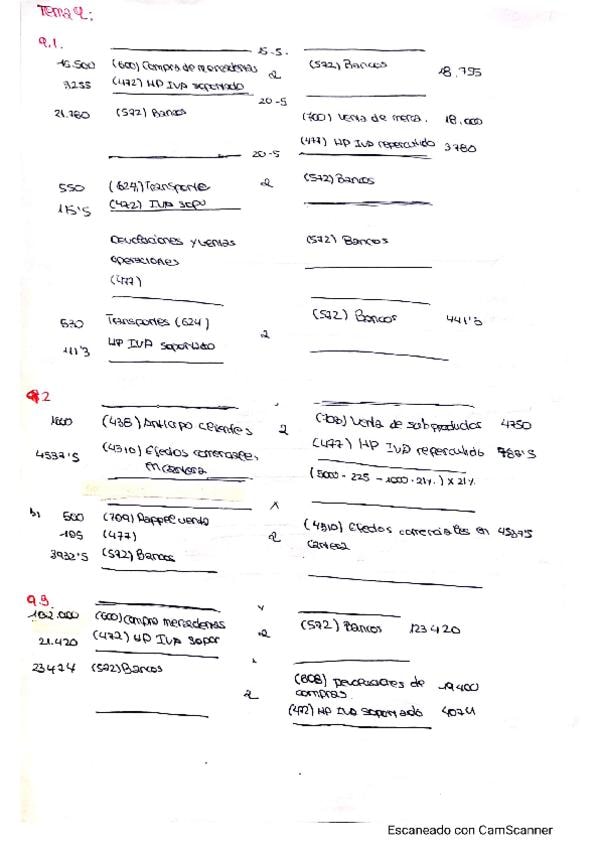 Tema 9:
9.1.
15-5.
16.500 (600) Compra de mercaderías a (572) Bancos 18.755
2255 (472) HP IVA soportado
20-5
21.780 (572) Bancos (700) Venta de merca. 18.000
(477) HP IVA repercutido 3780
20-5
550 (624) Transporte a (572) Bancos
115'5 (472) IVA sopo
Devoluciones y ventas (572) Bancos
operaciones
(477)
530 Transportes (624) a (572) Bancos 441'3
111'3 HP IVA soportado
9.2
1000 (438) Anticipo clientes a (703) Venta de subproductos 4750
4537'5 (4310) Efectos comerciales, (477) HP IVA repercutido 787'5
en cartera
(5000 - 225 - 1000 · 21%) x 21%
b) 500 (709) Rappel venta (4310) Efectos comerciales en 4537'5
105 (477) a cartera
3932'5 (572) Bancos
9.3.
102.000 (600) Compra mercaderías a (572) Bancos 123420
21.420 (472) HP IVA sopor
23474 (572) Bancos (608) Devoluciones de 19400
a compras
(472) HP IVA soportado 4074
Escaneado con CamScanner